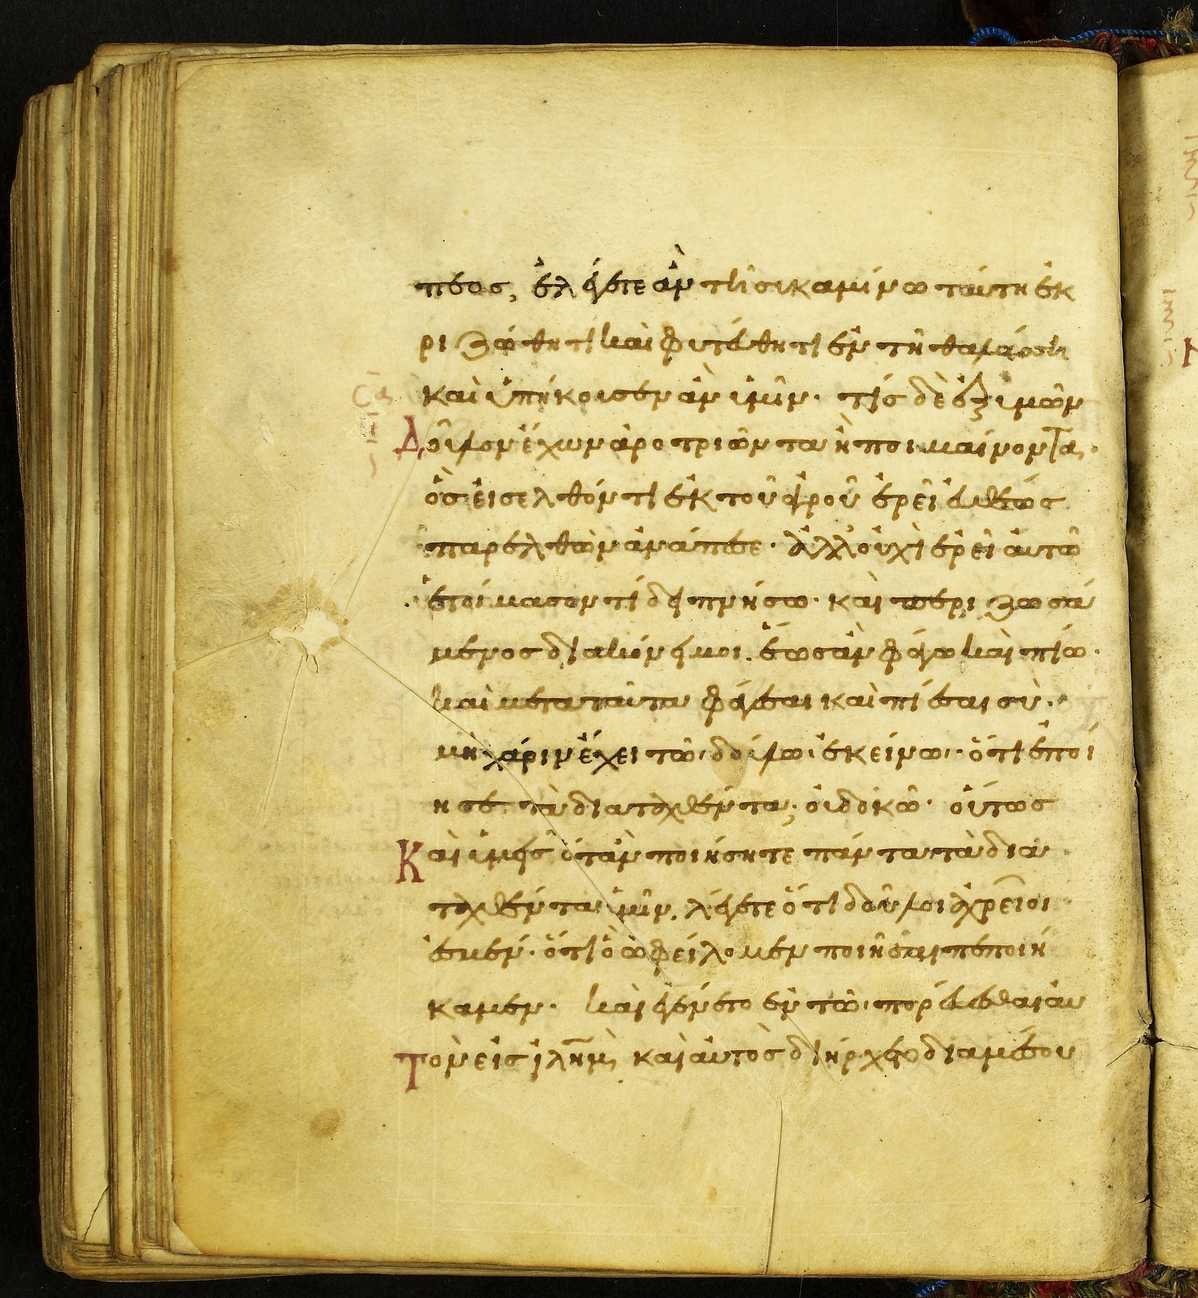 πεος, ἐλέγετε ἂν τῆ συκαμίνω ταύτη ἐκ
ριζώθητι καὶ φυτεύθητι ἐν τῆ θαλάσση
καὶ ὑπήκουσεν ἂν ὑμῖν· τίς δὲ ἐξ ὑμῶν
Δοῦλον ἔχων ἀροτριῶντα ἢ ποιμαίνοντα·
ὃς εἰσελθόντι ἐκ τοῦ ἀγροῦ ἐρεῖ εὐθέως
παρελθὼν ἀνάπεσε· ἀλλ' οὐχὶ ἐρεῖ αὐτῶ
ἑτοίμασον τί δειπνήσω· καὶ περιζωσά
μενος διακόνει μοι. ἕως ἂν φάγω καὶ πίω·
καὶ μετα ταῦτα φάγεσαι καὶ πίεσαι σὺ·
μὴ χάριν ἔχει τῶ δούλω ἐκείνω· ὅτι ἐποί
ησε τὰ διαταχθέντα; οὐ δοκῶ· οὕτως
Καὶ ὑμεῖς ὅταν ποιήσητε πάντα τὰ δια
ταχθέντα ὑμῖν, λέγετε ὅτι δοῦλοι ἀχρεῖοι
ἐσμέν· ὅτι ὃ ὠφείλομεν ποιῆσαι πεποιή
καμεν· καὶ ἐγένετο ἐν τῶ πορεύεσθαι αὐ
Τὸν εἰς ἱλῆμ, καὶ αὐτὸς διήρχετο δια μέσου